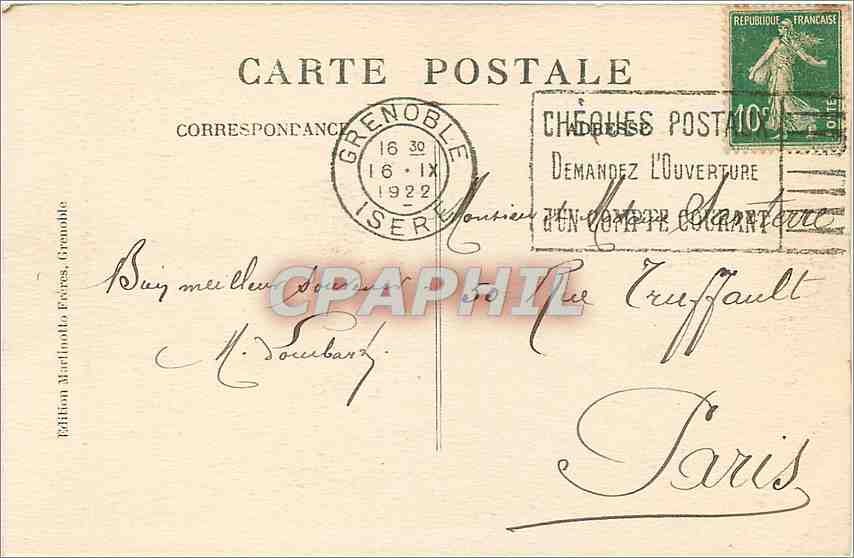 REPUBLIQUE FRANÇAISE
10c
POSTE
CARTE POSTALE
CORRESPONDANCE
ADRESSE
GRENOBLE
16 30
16 · IX
1922
ISERE
CHÈQUES POSTAUX
DEMANDEZ L'OUVERTURE
d'UN COMPTE COURANT
Monsieur et Madame
50 Rue Truffault
Paris
Bien meilleur souvenir
M.
CPAPHIL
Edition Martinotto Frères, Grenoble